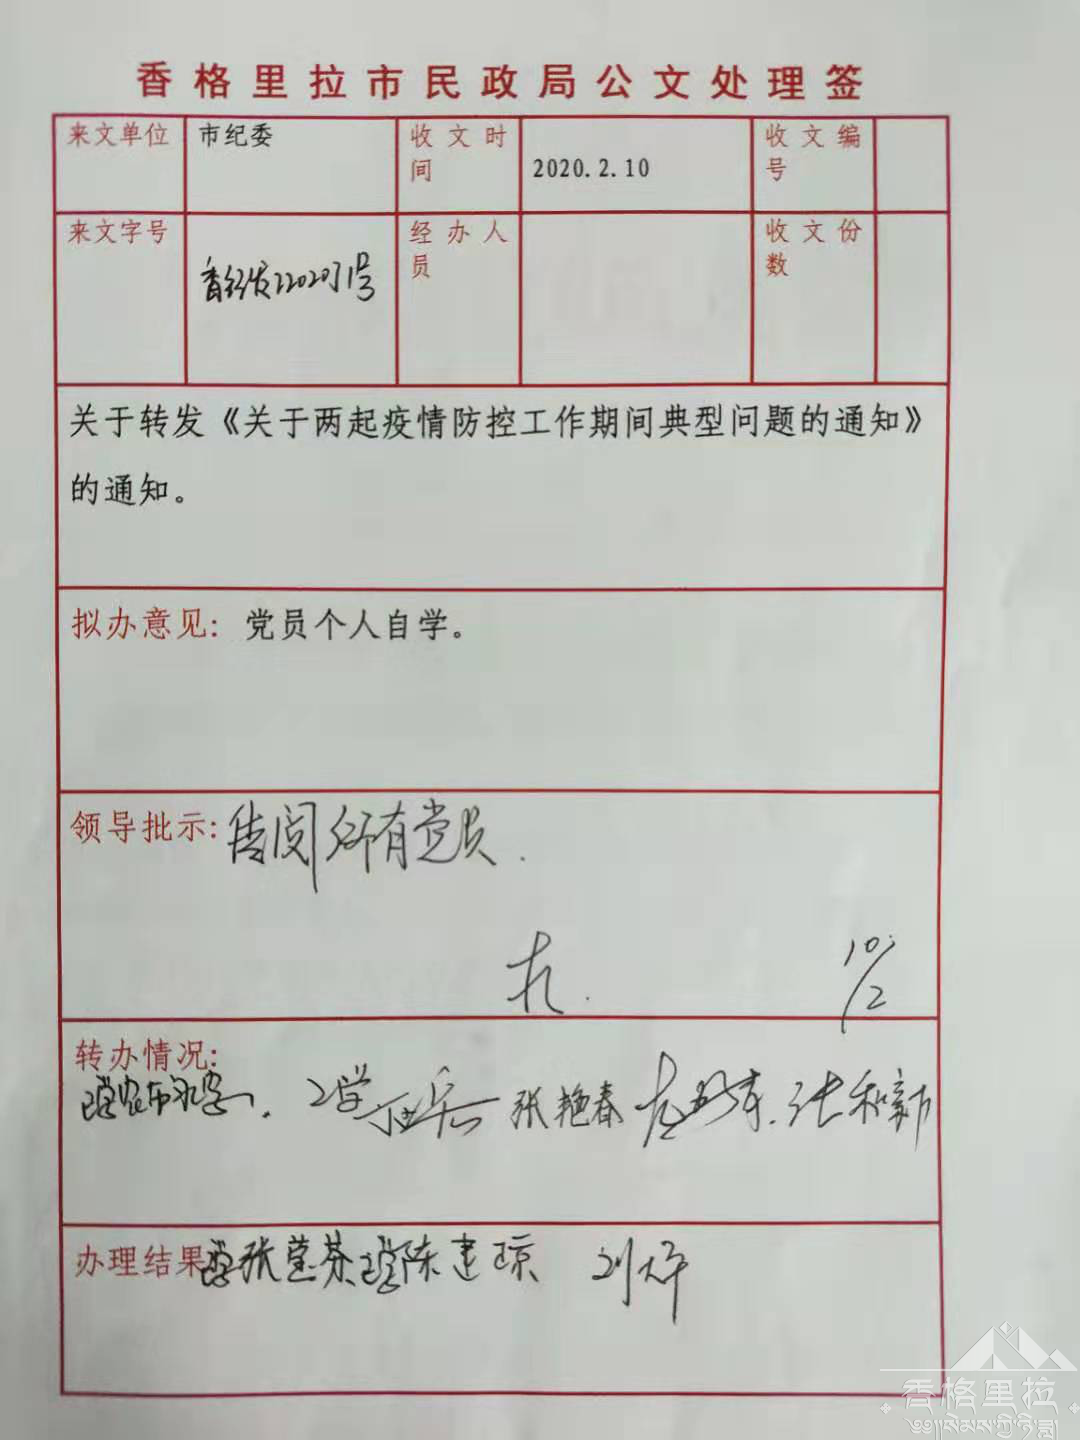 香格里拉市民政局公文处理签
来文单位 市纪委 收文时间 2020.2.10 收文编号
来文字号 香纪发〔2020〕1号 经办人员 收文份数
关于转发《关于两起疫情防控工作期间典型问题的通知》
的通知。
拟办意见：党员个人自学。
领导批示：传阅所有党员.
10/2
转办情况：
已学 张艳春
办理结果 已学 张莹芬 已学 陈建琼
香格里拉